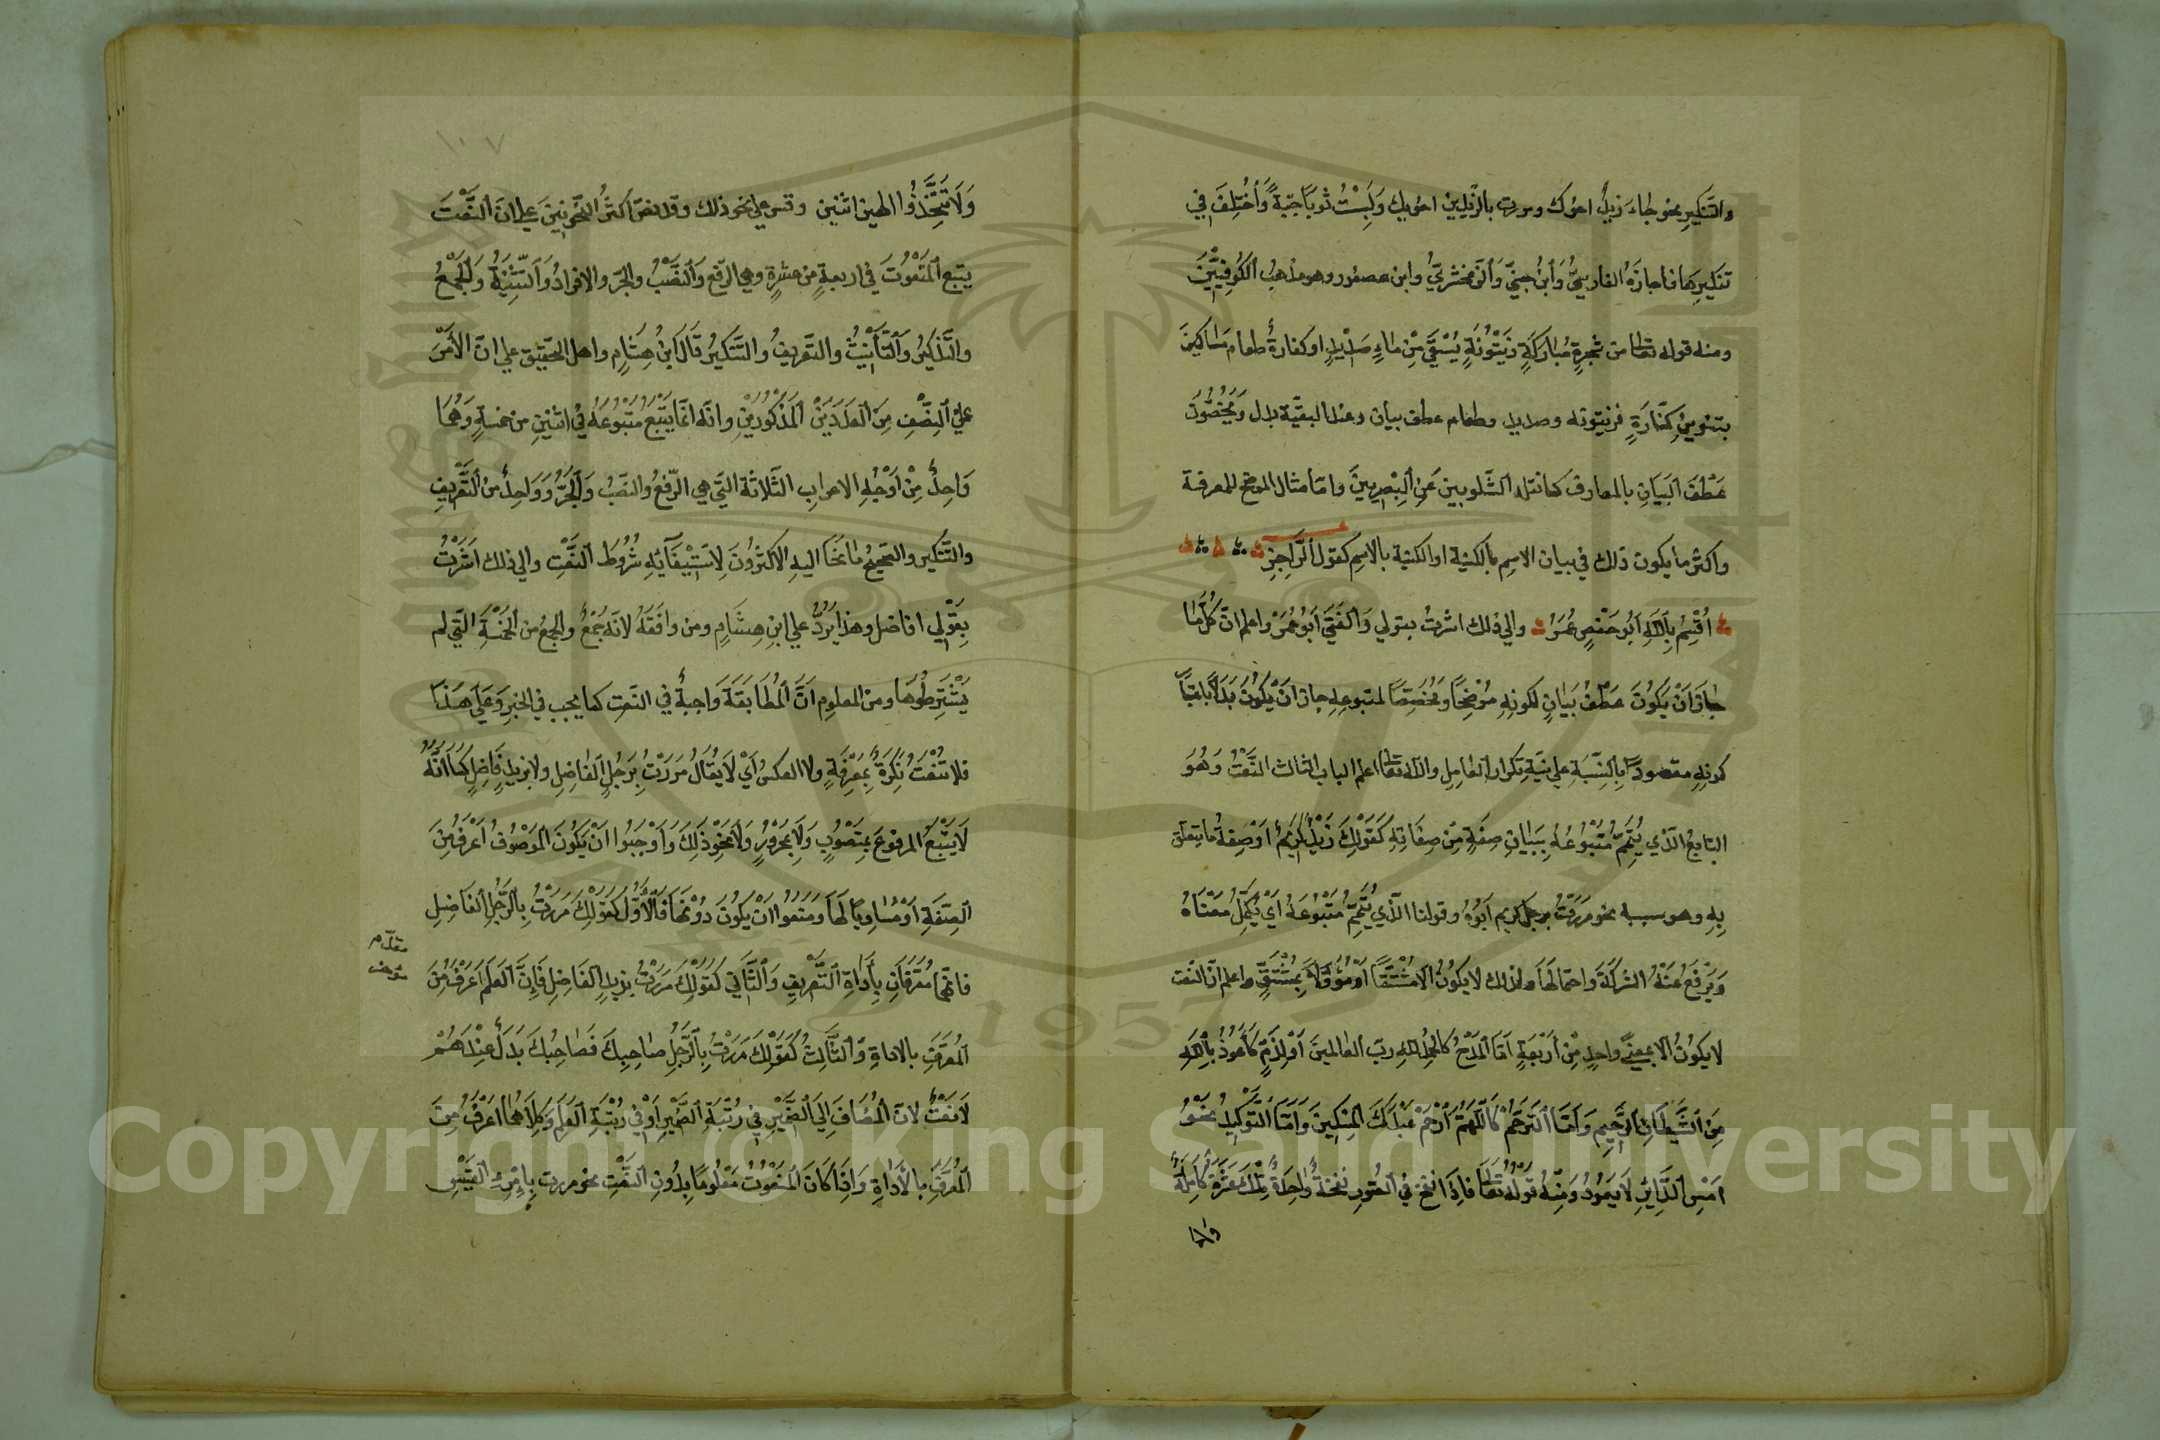 والتنكير نحو جاء زيد اخوك ومررت بالزيدين اخويك ولبست ثوبا جبة واختلف في
تنكيرها فاجازه الفارسي وابن جني والزمخشري وابن عصفور وهو مذهب الكوفيين
ومنه قوله تعالى من شجرة مباركة زيتونة يسقى من ماء صديد او كفارة طعام مساكين
بتنوين كفارة فزيتونه وصديد وطعام عطف بيان وعند البقية بدل ويخصون
عطف البيان بالمعارف كما نقله الشلوبين عن البصريين واما مثال الموضح للمعرفة
واكثر ما يكون ذلك في بيان الاسم بالكنية او الكنية بالاسم كقول الراجز
اقسم بالله ابو حفص عمر والي ذلك اشرت بقولي والفتي ابو عمر واعلم ان كل ما
جاز ان يكون عطف بيان لكونه موضحا ومخصصا لمتبوعه جاز ان يكون بدلا باعتبار
كونه مقصودا بالنسبة على نية تكرار العامل والله تعالى اعلم الباب الثالث النعت وهو
التابع الذي يتمم متبوعه ببيان صفة من صفاته كقولك زيد الكريم او صفة ما يتعلق
به وهو سببه نحو مررت برجل كريم ابوه وقولنا الذي يتمم متبوعه اي يكمل معناه
ويرفع عنه الشركة واحتمالها ولذلك لا يكون الا مشتقا او مؤولا بمشتق واعلم ان النعت
لا يكون الا بمعني واحد من اربعة اما المدح كالحمد لله رب العالمين او لذم كاعوذ بالله
من الشيطان الرجيم واما الترحم كاللهم ارحم عبدك المسكين واما التوكيد نحو
امس الدابر لا يعود ومنه قوله تعالى فاذا نفخ في الصور نفخة واحدة تلك عشرة كاملة
ولا
١٠٧
ولا تتخذوا الهين اثنين وقس علي نحو ذلك وقد نص اكثر النحويين علي ان النعت
يتبع المنعوت في اربعة من عشرة وهي الرفع والنصب والجر والافراد والتثنية والجمع
والتذكير والتأنيث والتعريف والتنكير قال ابن هشام واهل التحقيق علي ان الامر
علي النصف من العددين المذكورين وانه انما يتبع متبوعه في اثنين من خمسة وهما
واحد من اوجه الاعراب الثلاثة التي هي الرفع والنصب والجر وواحد من التعريف
والتنكير والصحيح ما نحا اليه الاكثرون لاستيفائه شروط النعت والي ذلك اشرت
بقولي افاضل وهذا يرد علي ابن هشام ومن وافقه لانه جمع والجمع من الخمسة التي لم
يشترطوها ومن المعلوم ان المطابقة واجبة في النعت كما يجب في الخبر وعلي هذا
فلا تنعت نكرة بمعرفة ولا العكس اي لا يقال مررت برجل الفاضل ولا بزيد فاضل كما انه
لا يتبع المرفوع بمنصوب ولا بمجرور ولا نحو ذلك واوجبوا ان يكون الموصوف اعرف من
الصفة او مساويا لها ومنعوا ان يكون دونها فالاول كقولك مررت بالرجل الفاضل
فانهما معرفان بأداة التعريف والثاني كقولك مررت بزيد الفاضل فان العلم اعرف من
المعرف بالاداة والثالث كقولك مررت بالرجل صاحبك فصاحبك بدل عندهم
لا نعت لان المضاف الي الضمير في رتبة الضمير او في رتبة العلم وكلاهما اعرف من
المعرف بالاداة واذا كان المنعوت معلوما بدون النعت نحو مررت بامرئ القيس